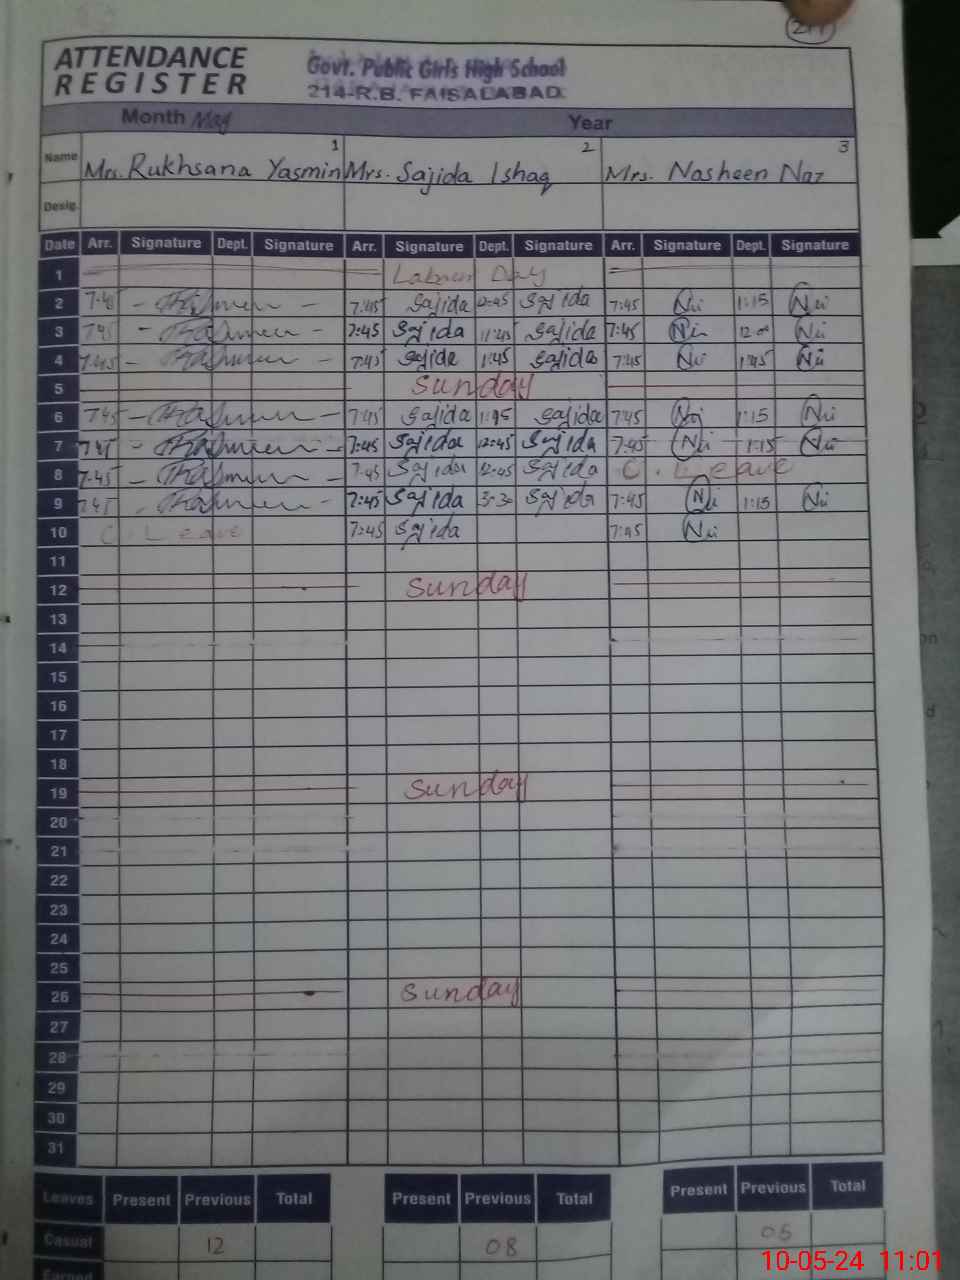 211
ATTENDANCE REGISTER
Govt. Public Girls High School
214-R.B. FAISALABAD.
Month May Year
Name 1 Mrs. Rukhsana Yasmin 2 Mrs. Sajida Ishaq 3 Mrs. Nasheen Naz
Desig.
Date Arr. Signature Dept. Signature Arr. Signature Dept. Signature Arr. Signature Dept. Signature
1 Labour Day
2 7:45 7:45 Sajida 12:45 Sajida 7:45 1:15
3 7:45 7:45 Sajida 11:45 Sajida 7:45
4 7:45 7:45 Sajida 1:45 Sajida 7:45 1:45
5 Sunday
6 7:45 7:45 Sajida 1:45 Sajida 7:45 1:15
7 7:45 7:45 Sajida 12:45 Sajida 7:45 1:15
8 7:45 7:45 Sajida 12:45 Sajida C. Leave
9 7:45 7:45 Sajida 3:30 Sajida 7:45 1:15
10 C. Leave 7:45 Sajida 7:45
11
12 Sunday
13
14
15
16
17
18
19 Sunday
20
21
22
23
24
25
26 Sunday
27
28
29
30
31
Leaves Present Previous Total Present Previous Total Present Previous Total
Casual 12 08 05
Earned
10-05-24 11:01